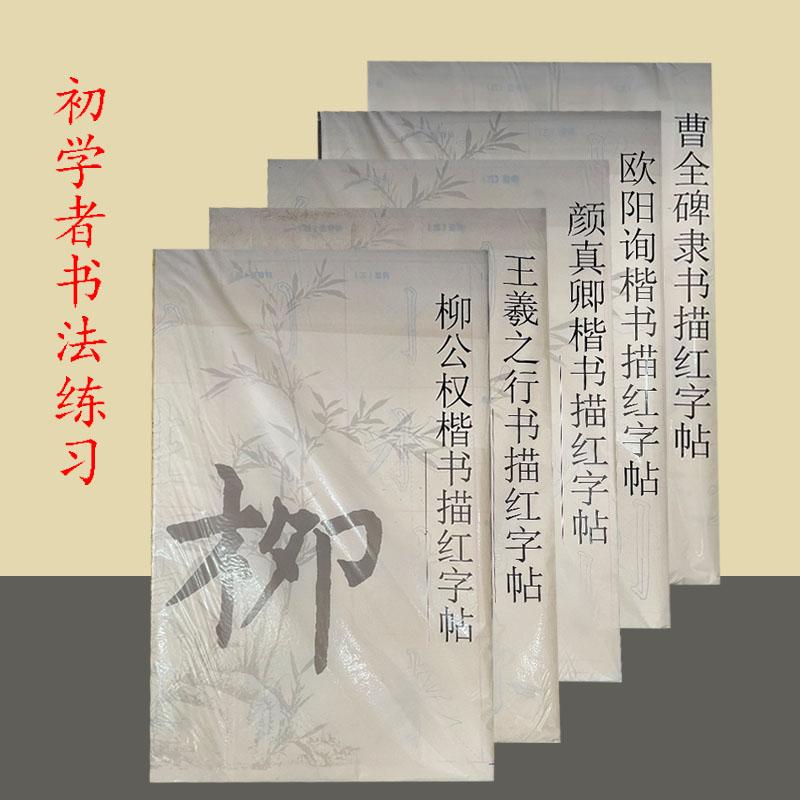 初学者书法练习
曹全碑隶书描红字帖
欧阳询楷书描红字帖
颜真卿楷书描红字帖
王羲之行书描红字帖
柳公权楷书描红字帖
柳